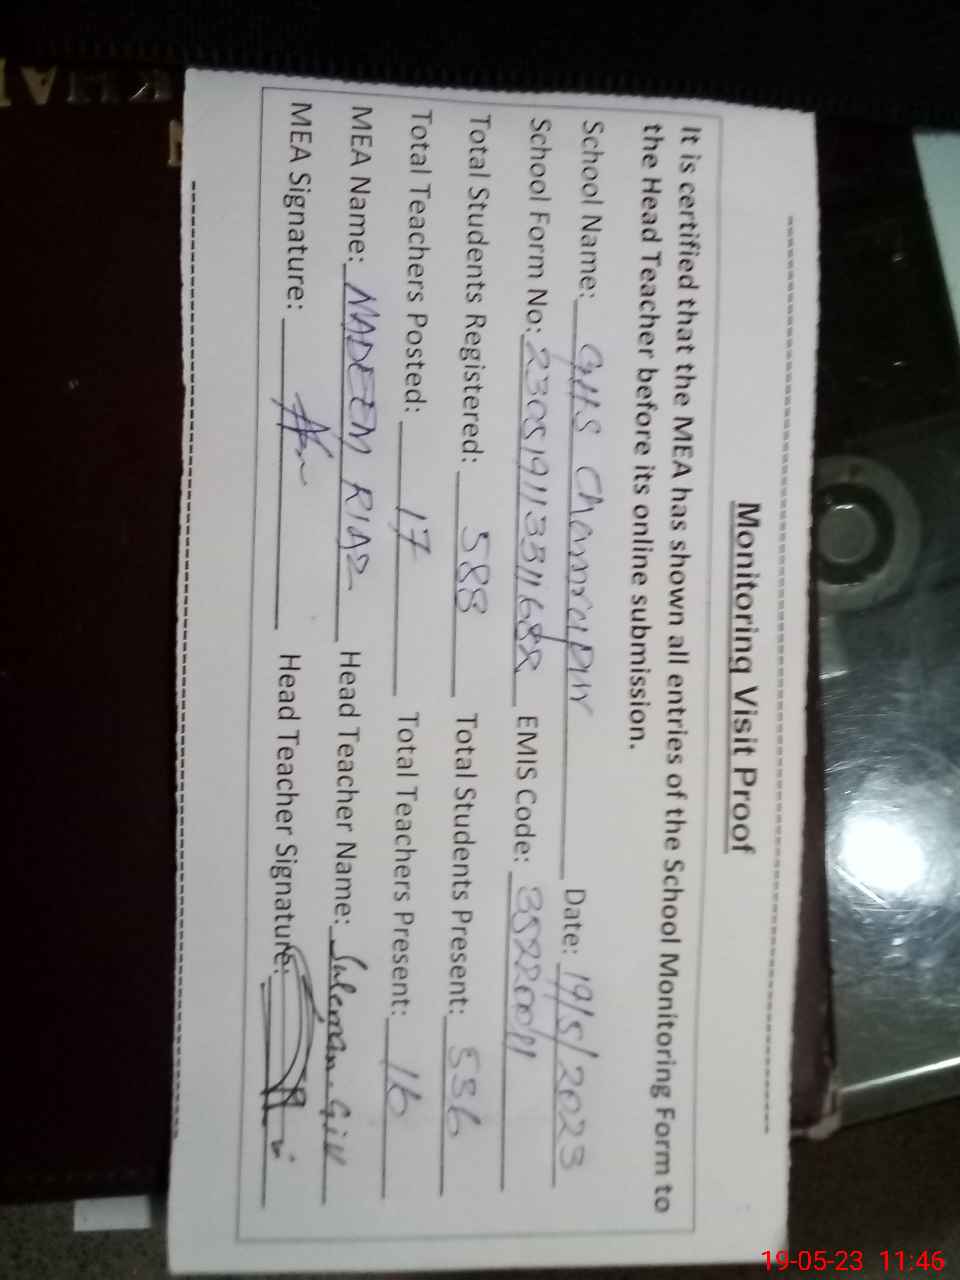 Monitoring Visit Proof
It is certified that the MEA has shown all entries of the School Monitoring Form to
the Head Teacher before its online submission.
School Name: GHS Date: 19/5/2023
School Form No: EMIS Code: 35220011
Total Students Registered: 588 Total Students Present: 536
Total Teachers Posted: 17 Total Teachers Present: 16
MEA Name: NADEEM RIAZ Head Teacher Name: Suleman Gill
MEA Signature: Head Teacher Signature:
19-05-23 11:46